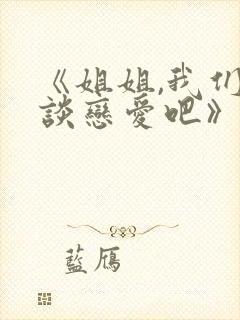 《姐姐,我们
談戀愛吧》
藍鴈